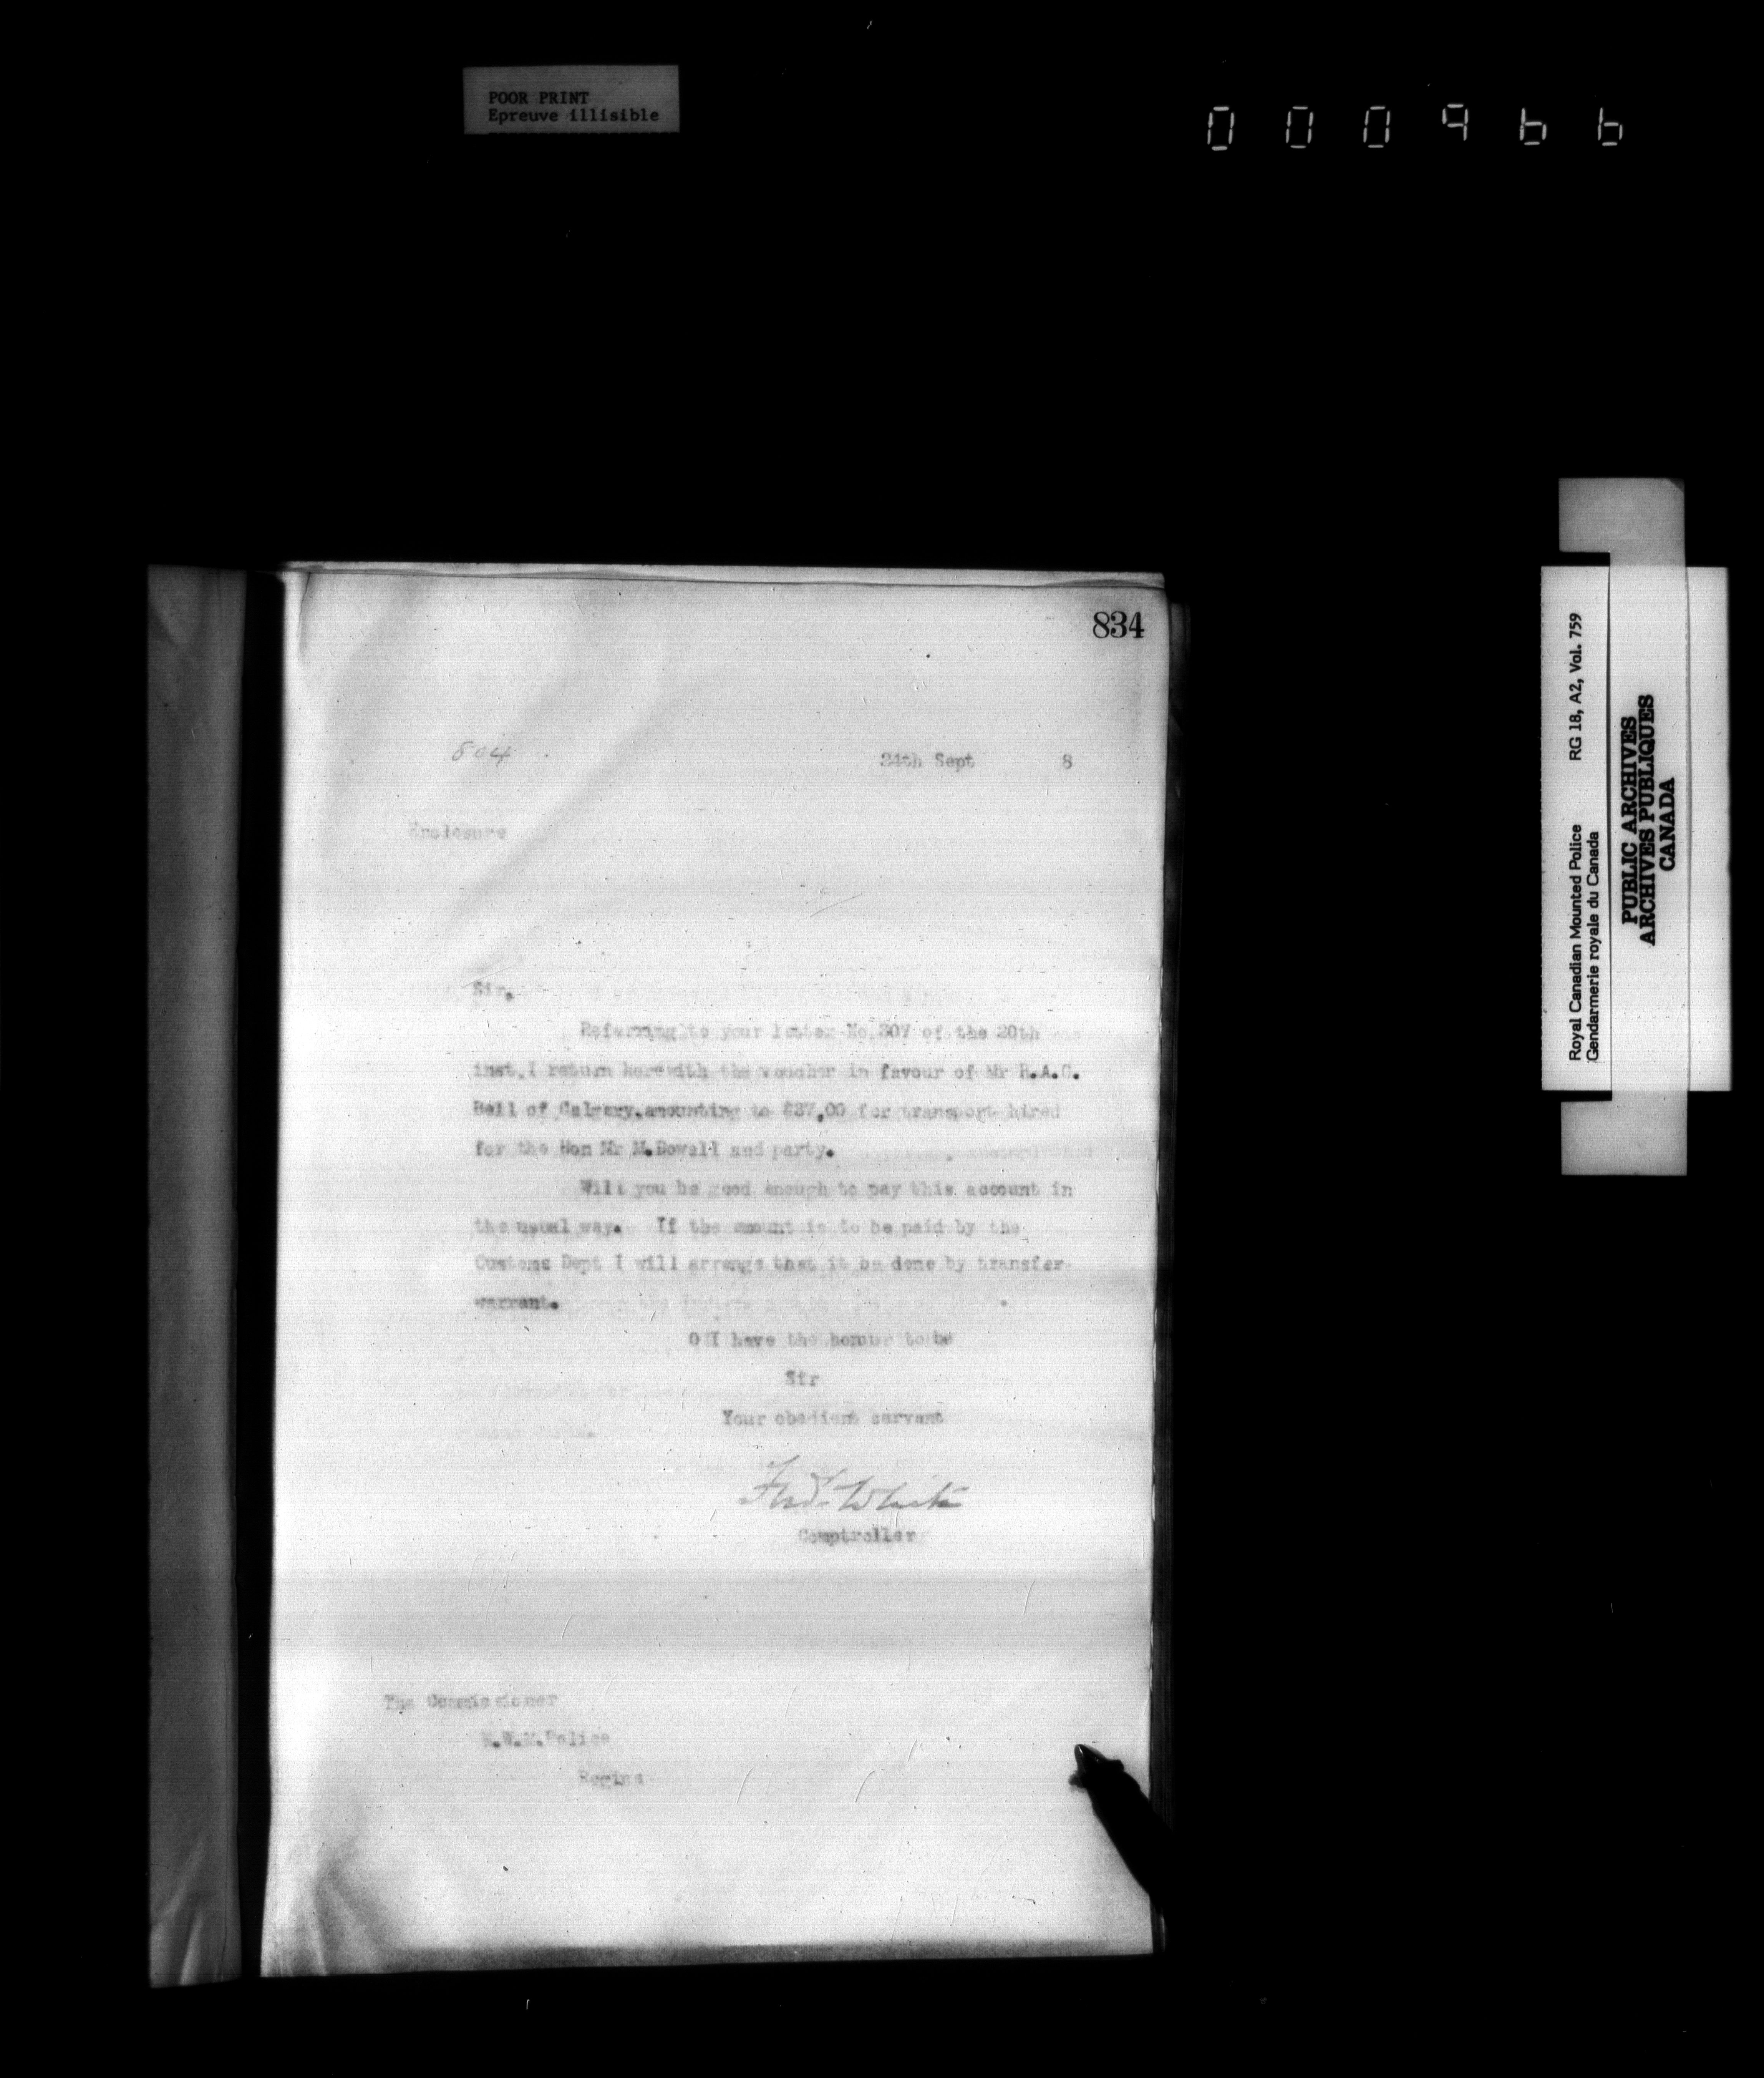 POOR PRINT
Epreuve illisible
000966
834
804
24th Sept 8
Enclosure
Sir,
Referring to your letter No.307 of the 20th
inst.I return herewith the voucher in favour of Mr R.A.C.
Bell of Calgary.amounting to $37,00 for transport hired
for the Hon Mr M.Bowell and party.
Will you be good enough to pay this account in
the usual way. If the amount is to be paid by the
Customs Dept I will arrange that it be done by transfer
warrant.
O I have the honour to be
Sir
Your obedient servant
Fred White
Comptroller
The Commissioner
N.W.M.Police
Regina
Royal Canadian Mounted Police RG 18, A2, Vol. 759
Gendarmerie royale du Canada
PUBLIC ARCHIVES
ARCHIVES PUBLIQUES
CANADA